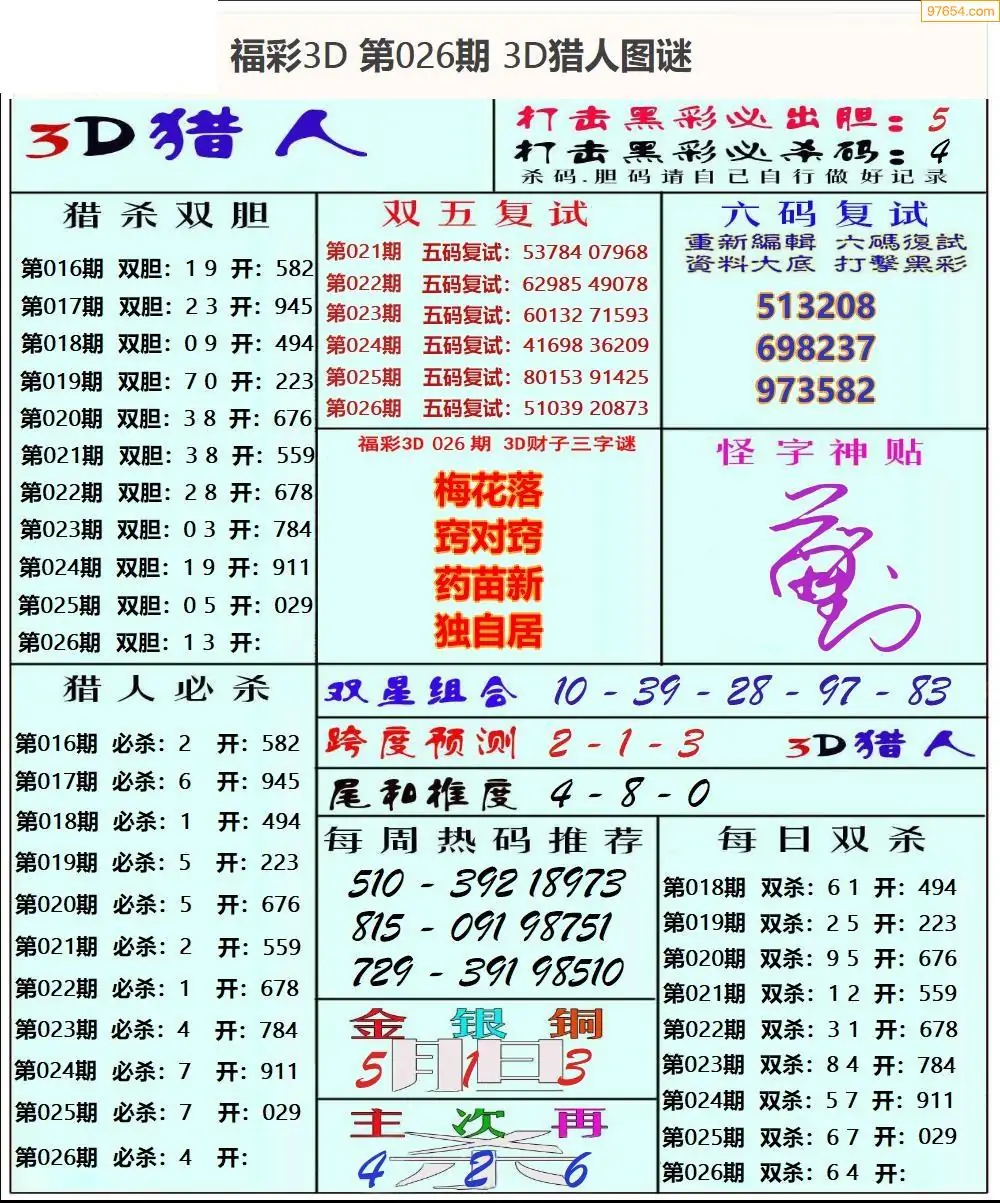 97654.com
福彩3D 第026期 3D猎人图谜
3D猎人
打击黑彩必出胆：5
打击黑彩必杀码：4
杀码.胆码请自己自行做好记录
猎杀双胆
第016期 双胆：1 9 开：582
第017期 双胆：2 3 开：945
第018期 双胆：0 9 开：494
第019期 双胆：7 0 开：223
第020期 双胆：3 8 开：676
第021期 双胆：3 8 开：559
第022期 双胆：2 8 开：678
第023期 双胆：0 3 开：784
第024期 双胆：1 9 开：911
第025期 双胆：0 5 开：029
第026期 双胆：1 3 开：
双五复试
第021期 五码复试：53784 07968
第022期 五码复试：62985 49078
第023期 五码复试：60132 71593
第024期 五码复试：41698 36209
第025期 五码复试：80153 91425
第026期 五码复试：51039 20873
六码复试
重新編輯 六碼復試
資料大底 打擊黑彩
513208
698237
973582
福彩3D 026期 3D财子三字谜
梅花落
窍对窍
药苗新
独自居
怪字神贴
猎人必杀
第016期 必杀：2 开：582
第017期 必杀：6 开：945
第018期 必杀：1 开：494
第019期 必杀：5 开：223
第020期 必杀：5 开：676
第021期 必杀：2 开：559
第022期 必杀：1 开：678
第023期 必杀：4 开：784
第024期 必杀：7 开：911
第025期 必杀：7 开：029
第026期 必杀：4 开：
双星组合 10 - 39 - 28 - 97 - 83
跨度预测 2 - 1 - 3 3D猎人
尾和推度 4 - 8 - 0
每周热码推荐
510 - 392 18973
815 - 091 98751
729 - 391 98510
金银铜
胆
5 1 3
主次再
杀
4 2 6
每日双杀
第018期 双杀：6 1 开：494
第019期 双杀：2 5 开：223
第020期 双杀：9 5 开：676
第021期 双杀：1 2 开：559
第022期 双杀：3 1 开：678
第023期 双杀：8 4 开：784
第024期 双杀：5 7 开：911
第025期 双杀：6 7 开：029
第026期 双杀：6 4 开：